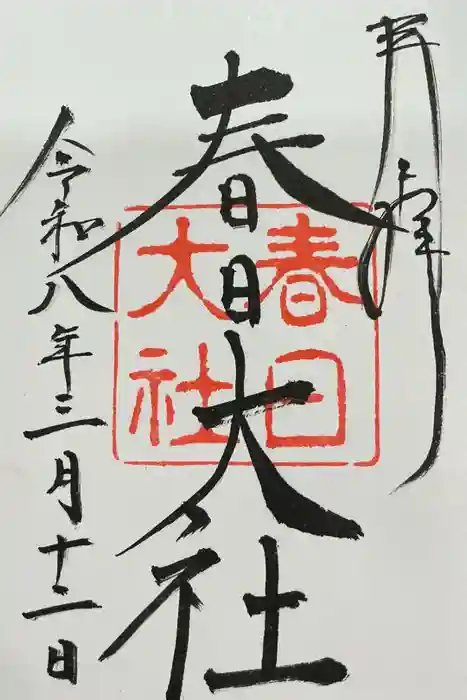 奉拝
春日大社
春日
大社
令和八年三月十二日